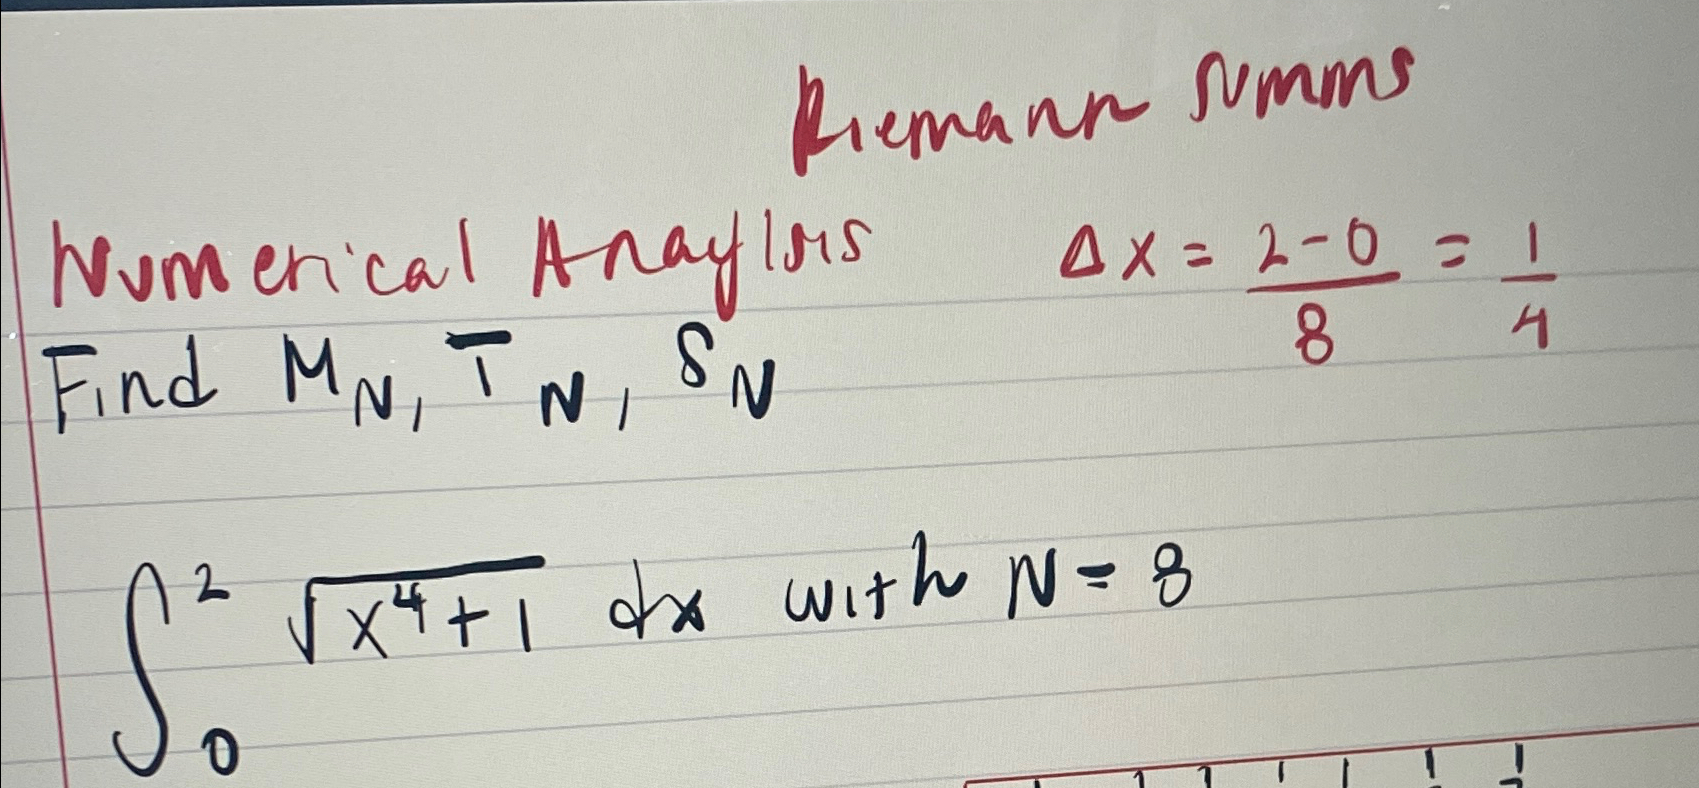 Riemann summs
Numerical Anaylsis Δx = 2-0/8 = 1/4
Find M_N, T_N, S_N
∫_0^2 √(x^4+1) dx with N = 8